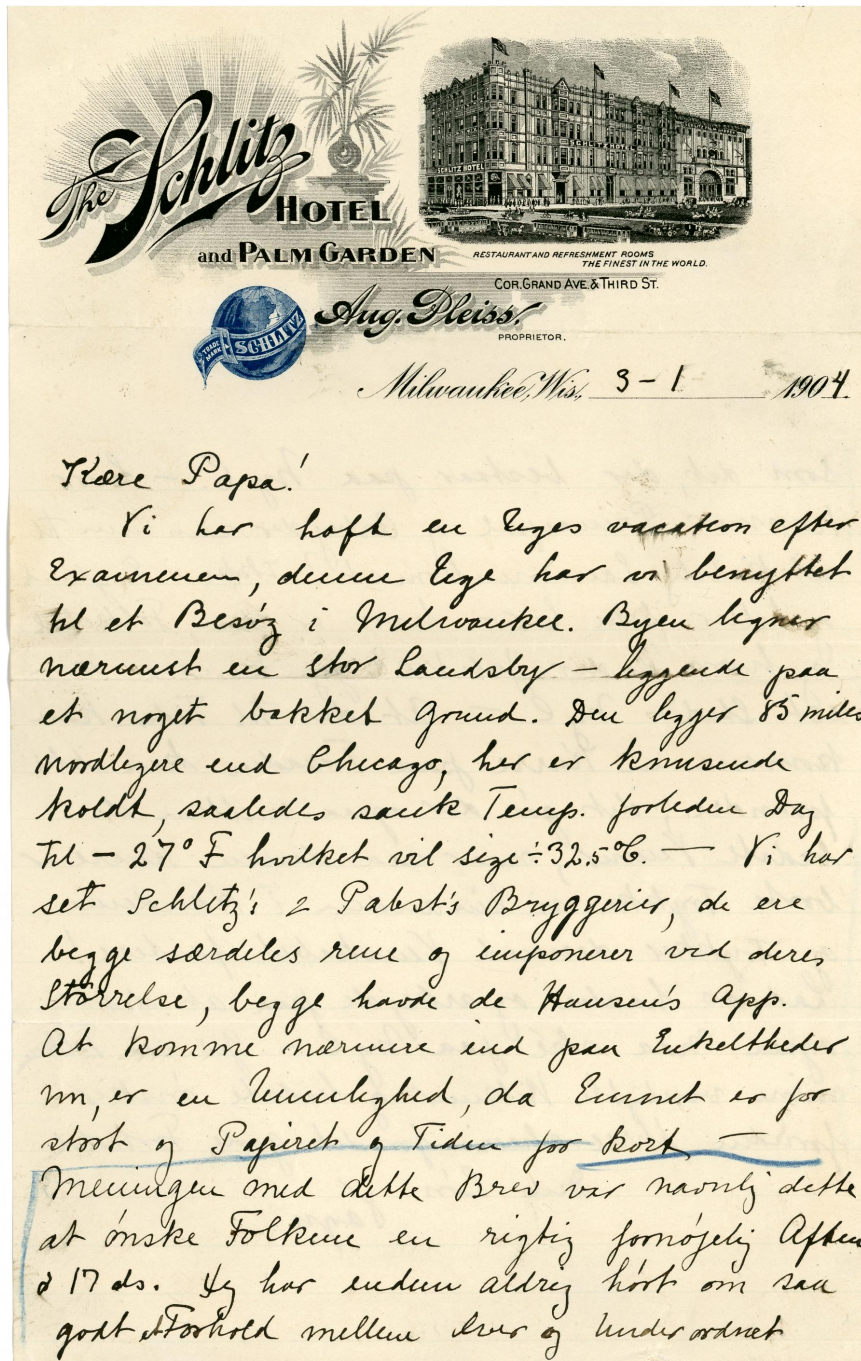 The Schlitz
HOTEL
and PALM GARDEN
SCHLITZ HOTEL
SCHLITZ HOTEL
RESTAURANT AND REFRESHMENT ROOMS
THE FINEST IN THE WORLD.
COR. GRAND AVE. & THIRD ST.
TRADE MARK
SCHLITZ
Aug. Pleiss.
PROPRIETOR.
Milwaukee, Wis., 3-1 1904.
Kære Papa!
Vi har haft en Uges vacation efter
Examenen, denne Uge har vi benyttet
til et Besög i Milwaukee. Byen ligner
nærmest en stor Landsby — liggende paa
et noget bakket Grund. Den ligger 85 miles
nordligere end Chicago, her er knusende
koldt, saaledes sank Temp. forleden Dag
til — 27° F hvilket vil sige ÷ 32.5°C. — Vi har
set Schlitz's & Pabst's Bryggerier, de ere
begge særdeles rene og imponerer ved deres
Störrelse, begge havde de Hansen's App.
At komme nærmere ind paa Enkeltheder
nu, er en Umulighed, da Emnet er for
stort og Papiret og Tiden for kort —
Meningen med dette Brev var navnlig dette
at önske Folkene en rigtig fornöjelig Aften
d 17 ds. Jeg har endnu aldrig hört om saa
godt et Forhold mellem Over og Underordnet